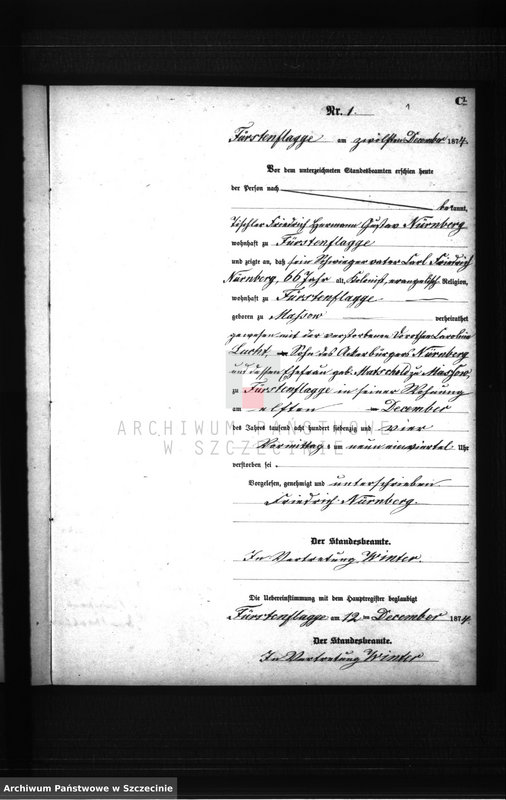 C¹
Nr. 1.
Fürstenflagge am zwölften December 1874.
Vor dem unterzeichneten Standesbeamten erschien heute
der Person nach
bekannt,
Tischler Friedrich Hermann Gustav Nürnberg
wohnhaft zu Fürstenflagge
und zeigte an, daß sein Schwieger vater Carl Friedrich
Nürnberg, 66 Jahr alt, Kolonist, evangelisch Religion,
wohnhaft zu Fürstenflagge
geboren zu Massow verheirathet
gewesen mit der verstorbenen Dorothea Caroline
Lucht, Sohn des Ackerbürgers Nürnberg
und dessen Ehefrau geb. zu Massow,
zu Fürstenflagge in seiner Wohnung
am elften December
des Jahres tausend acht hundert siebenzig und vier
Vormittag s um neun einviertel Uhr
verstorben sei.
Vorgelesen, genehmigt und unterschrieben
Friedrich Nürnberg.
Der Standesbeamte.
In Vertretung Winter.
Die Uebereinstimmung mit dem Hauptregister beglaubigt
Fürstenflagge am 12 ten December 1874.
Der Standesbeamte.
In Vertretung Winter
ARCHIWUM PAŃSTWOWE
W SZCZECINIE
Archiwum Państwowe w Szczecinie